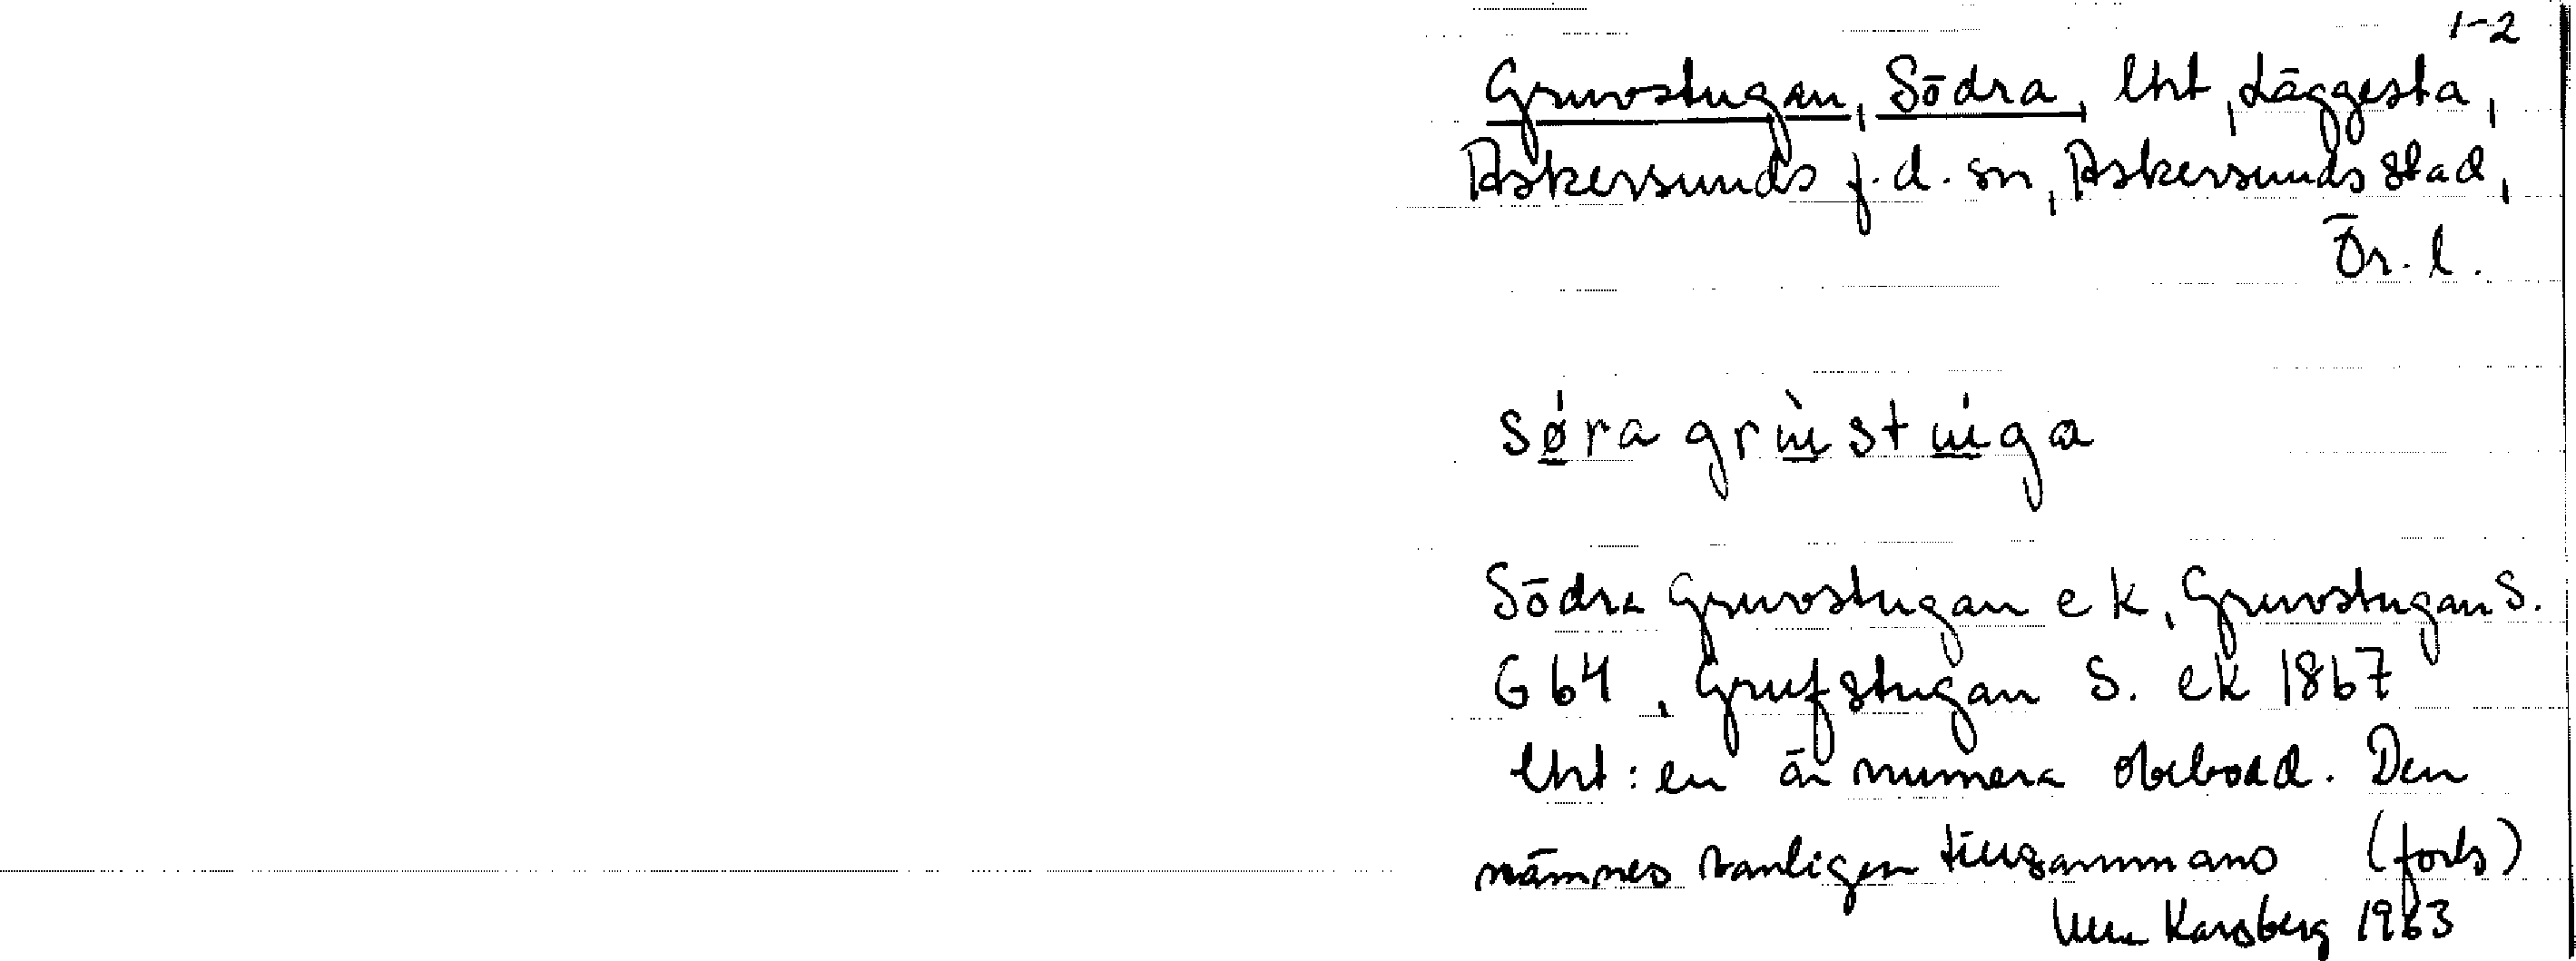 1-2
Gruvstugan, Södra, lht, Läggesta,
Askersunds f.d. sn, Askersunds stad,
Ör. l.
sǿra grùstúga
Södra Gruvstugan ek, Gruvstugan S.
G 64, Grufstugan S. ek 1867
lht:en är numera obebodd. Den
nämnes vanligen tillsammans (forts)
Karsberg 1963